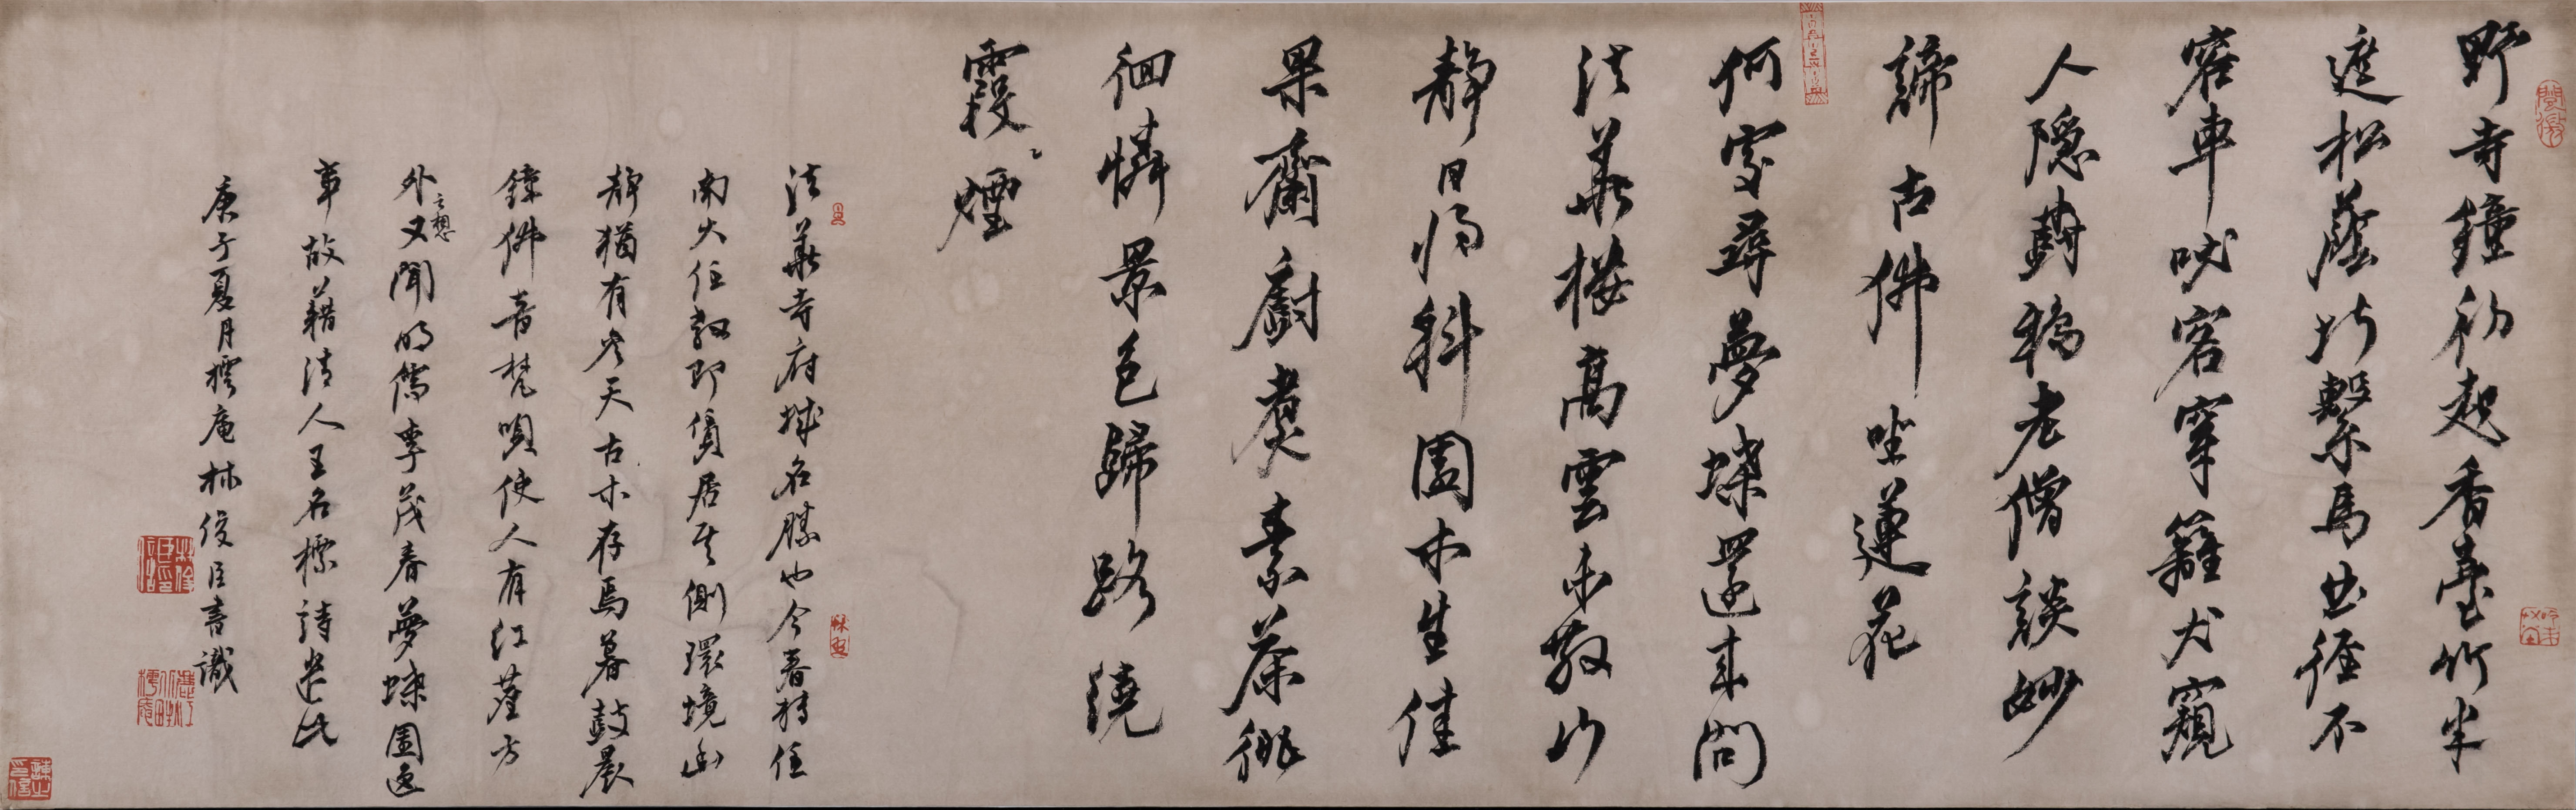 野寺鐘初起香臺竹半
遮松蔭堪繫馬曲徑不
容車吠客穿籬犬窺
人隱樹鴉老僧談妙
諦古佛坐蓮花
何處尋夢蝶還來問
法華樓高雲未散門
靜日將斜園木生佳
果齋廚煮素茶徘
徊憐景色歸路繞
霞煙
法華寺府城名勝也今春轉任
南大任教即賃居其側環境幽
靜猶有參天古木存焉暮鼓晨
鐘佛音梵唄使人有紅塵方
外之想又聞明儒李茂春夢蝶園逸
事故藉清人王名標詩遣此
庚子夏月樗庵林俊臣書識